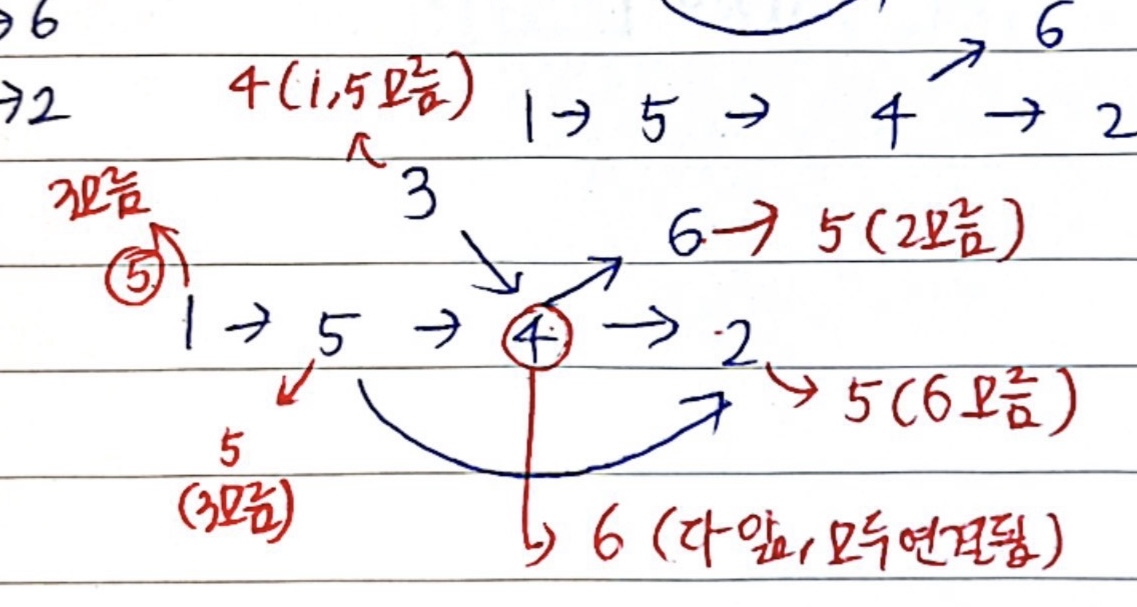 → 6
→ 2
6
1 → 5 → 4 → 2
4 (1,5 모름)
3
3모름
⑤
6 → 5 (2모름)
1 → 5 → ④ → 2
5 (6모름)
5
(3모름)
6 (다 앎, 모두 연결됨)